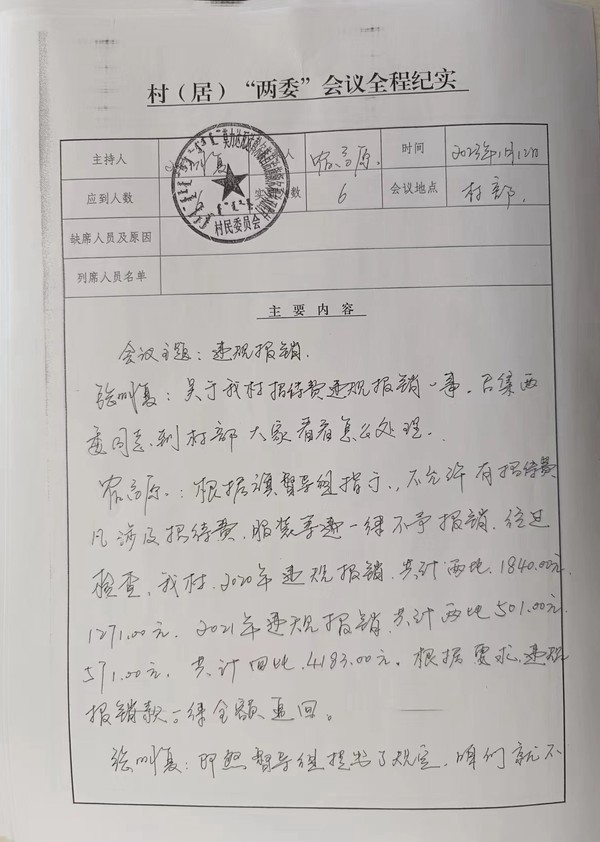 村（居）“两委”会议全程纪实
主持人 时间 2023年1月12日
应到人数 6 会议地点 村部.
缺席人员及原因
列席人员名单
村民委员会
主要内容
会议主题：违规报销.
关于我村招待费违规报销一事，召集两
委同志，到村部大家看看怎么处理.
根据旗督导组指示，不允许有招待费
凡涉及招待费，服装等违一律不予报销，经过
检查，我村，2020年违规报销，共计两比，1840.00元，
1271.00元，2021年违规报销，共计两比501.00元，
571.00元，共计四比，4183.00元，根据要求，违规
报销款一律全额退回。
即然督导组提出了规定，咱们就不